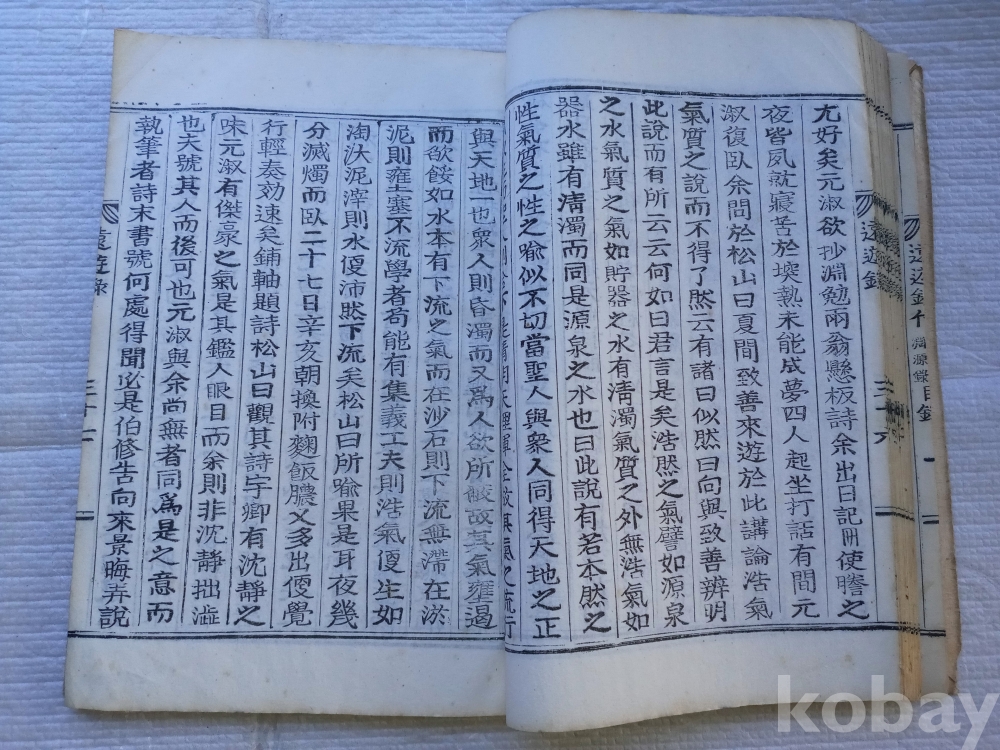 尤好矣元淑欲抄淵勉兩翁懸板詩余出日記冊使謄之
夜皆夙就寢苦於堗熱未能成夢四人起坐打話有間元
淑復臥余問於松山曰夏間致善來遊於此講論浩氣
氣質之說而不得了然云有諸曰似然曰向與致善辨明
此說而有所云云何如曰君言是矣浩然之氣譬如源泉
之水氣質之氣如貯器之水有淸濁氣質之外無浩氣如
器水雖有淸濁而同是源泉之水也曰此說有若本然之
性氣質之性之喩似不切當聖人與衆人同得天地之正
與天地一也衆人則昏濁而又爲人欲所蔽故其氣壅遏
而欲餒如水本有下流之氣而在沙石則下流無滯在淤
泥則壅塞不流學者苟能有集義工夫則浩氣便生如
淘汰泥滓則水便沛然下流矣松山曰所喩果是耳夜幾
分滅燭而臥二十七日辛亥朝換附麴飯膿又多出便覺
行輕奏効速矣鋪軸題詩松山曰觀其詩字卿有沈靜之
味元淑有傑豪之氣是其鑑人眼目而余則非沈靜拙澁
也夫號其人而後可也元淑與余尚無者同爲是之意而
執筆者詩末書號何處得聞必是伯修告向來景晦弄說
遠遊錄
遠遊錄
目錄
kobay